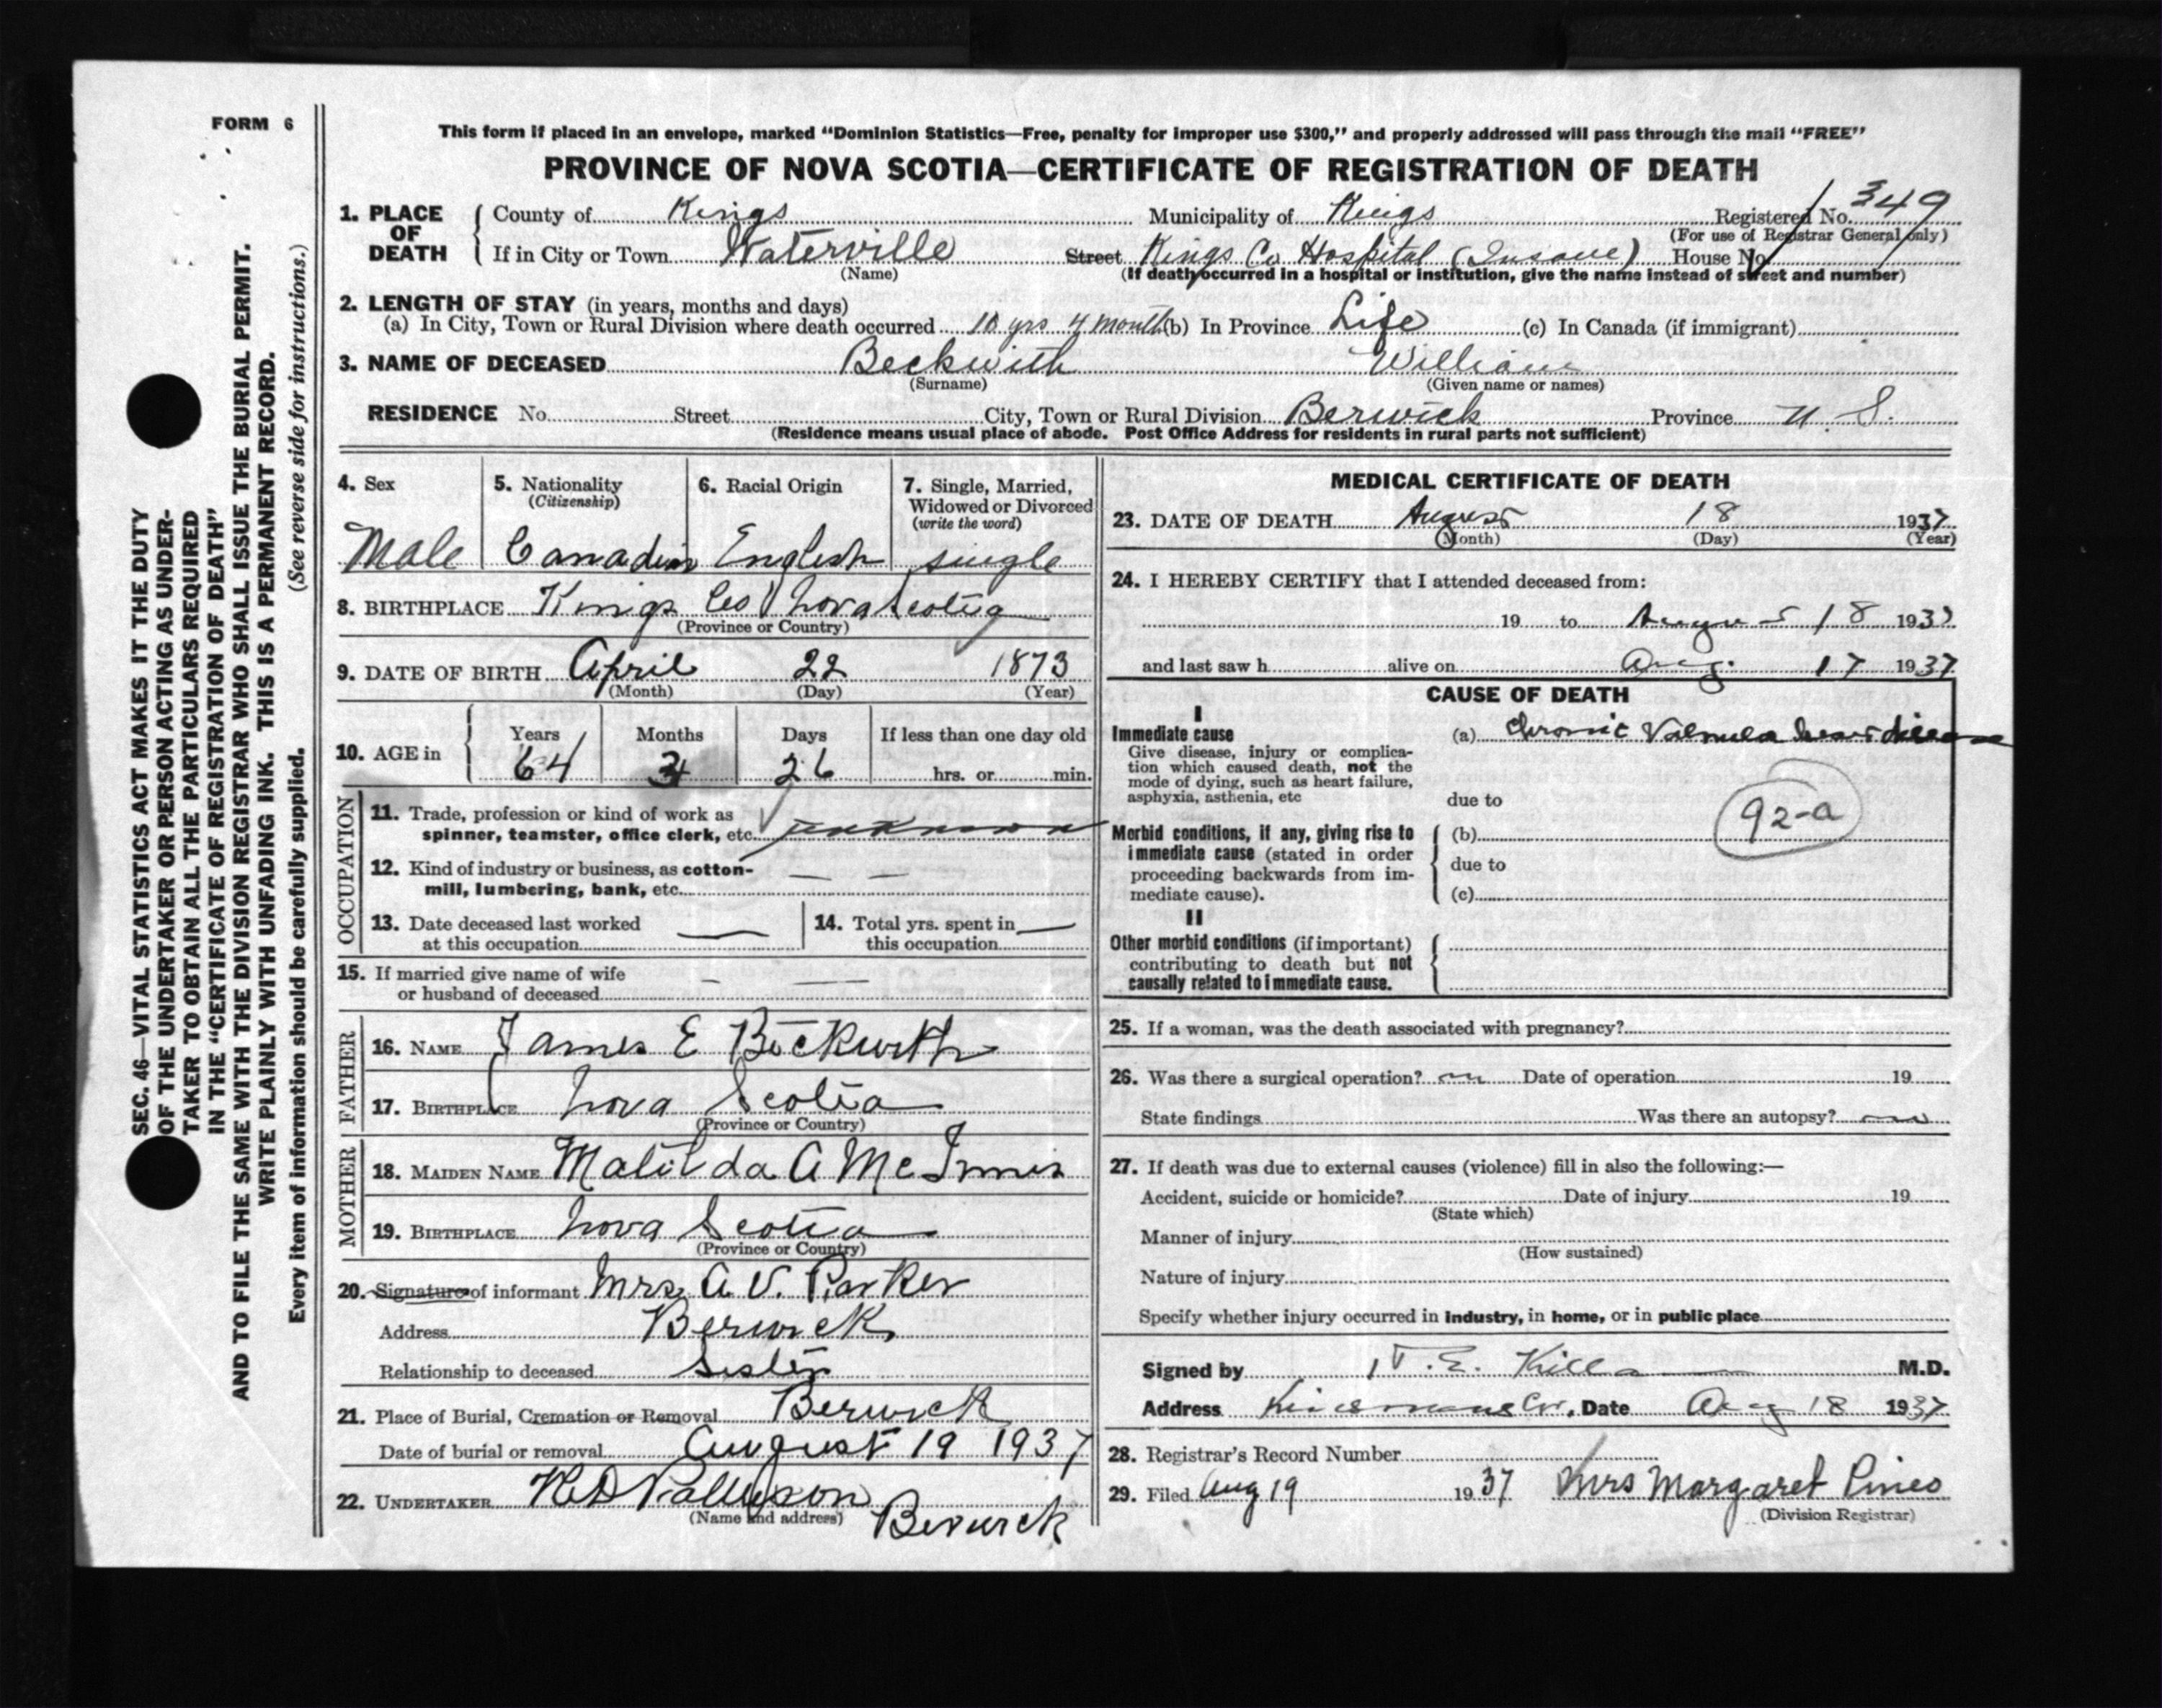 FORM 6
This form if placed in an envelope, marked "Dominion Statistics—Free, penalty for improper use $300," and properly addressed will pass through the mail "FREE"
PROVINCE OF NOVA SCOTIA—CERTIFICATE OF REGISTRATION OF DEATH
1. PLACE OF DEATH
County of Kings Municipality of Kings Registered No. 349
(For use of Registrar General only)
If in City or Town Waterville Street Kings Co Hospital (Insane) House No.
(Name) (If death occurred in a hospital or institution, give the name instead of street and number)
2. LENGTH OF STAY (in years, months and days)
(a) In City, Town or Rural Division where death occurred 10 yrs 4 month (b) In Province Life (c) In Canada (if immigrant)
3. NAME OF DECEASED Beckwith William
(Surname) (Given name or names)
RESIDENCE No. Street City, Town or Rural Division Berwick Province N. S.
(Residence means usual place of abode. Post Office Address for residents in rural parts not sufficient)
4. Sex
Male
5. Nationality
(Citizenship)
Canadian
6. Racial Origin
English
7. Single, Married,
Widowed or Divorced
(write the word)
single
8. BIRTHPLACE Kings Co Nova Scotia
(Province or Country)
9. DATE OF BIRTH April 22 1873
(Month) (Day) (Year)
10. AGE in
Years Months Days If less than one day old
64 3 26 hrs. or min.
OCCUPATION
11. Trade, profession or kind of work as
spinner, teamster, office clerk, etc. unknown
12. Kind of industry or business, as cotton-
mill, lumbering, bank, etc. — —
13. Date deceased last worked
at this occupation —
14. Total yrs. spent in
this occupation —
15. If married give name of wife
or husband of deceased — —
FATHER
16. NAME James E Beckwith
17. BIRTHPLACE Nova Scotia
(Province or Country)
MOTHER
18. MAIDEN NAME Matilda A McInnis
19. BIRTHPLACE Nova Scotia
(Province or Country)
20. Signature of informant Mrs A. V. Parker
Address Berwick
Relationship to deceased Sister
21. Place of Burial, Cremation or Removal Berwick
Date of burial or removal August 19 1937
22. UNDERTAKER
(Name and address) Berwick
MEDICAL CERTIFICATE OF DEATH
23. DATE OF DEATH August 18 1937
(Month) (Day) (Year)
24. I HEREBY CERTIFY that I attended deceased from:
19 to August 18 1937
and last saw h alive on Aug. 17 1937
CAUSE OF DEATH
I
Immediate cause
Give disease, injury or complica-
tion which caused death, not the
mode of dying, such as heart failure,
asphyxia, asthenia, etc
(a) Chronic Valvula heart disease
due to
92-a
Morbid conditions, if any, giving rise to
immediate cause (stated in order
proceeding backwards from im-
mediate cause).
(b)
due to
(c)
II
Other morbid conditions (if important)
contributing to death but not
causally related to immediate cause.
25. If a woman, was the death associated with pregnancy?
26. Was there a surgical operation? no Date of operation 19
State findings Was there an autopsy? no
27. If death was due to external causes (violence) fill in also the following:—
Accident, suicide or homicide? Date of injury 19
(State which)
Manner of injury
(How sustained)
Nature of injury
Specify whether injury occurred in industry, in home, or in public place
Signed by M.D.
Address Date Aug 18 1937
28. Registrar's Record Number
29. Filed Aug 19 1937 Mrs Margaret Pineo
(Division Registrar)
SEC. 46—VITAL STATISTICS ACT MAKES IT THE DUTY
OF THE UNDERTAKER OR PERSON ACTING AS UNDER-
TAKER TO OBTAIN ALL THE PARTICULARS REQUIRED
IN THE "CERTIFICATE OF REGISTRATION OF DEATH"
AND TO FILE THE SAME WITH THE DIVISION REGISTRAR WHO SHALL ISSUE THE BURIAL PERMIT.
WRITE PLAINLY WITH UNFADING INK. THIS IS A PERMANENT RECORD.
Every item of information should be carefully supplied. (See reverse side for instructions.)